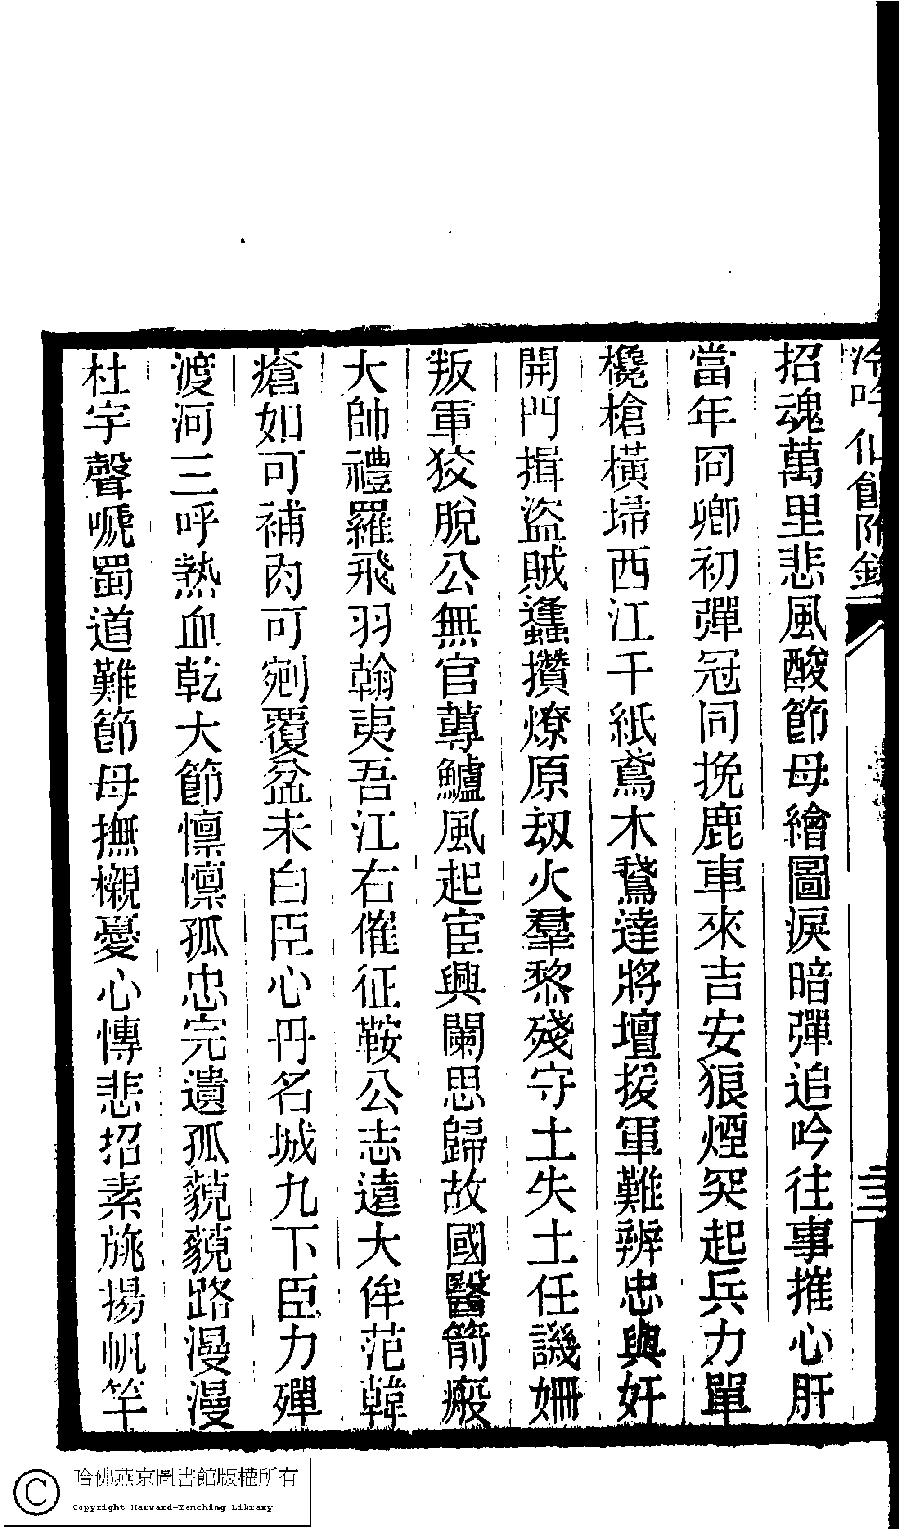 冷吟仙館附錄
三
招魂萬里悲風酸節母繪圖淚暗彈追吟往事摧心肝
當年冏卿初彈冠同挽鹿車來吉安狼煙突起兵力單
欃槍橫埽西江干紙鳶木鵞達將壇援軍難辨忠與奸
開門揖盜賊蠭攢燎原刼火羣黎殘守土失土任譏姍
叛軍狡脫公無官蓴鱸風起宦興闌思歸故國醫箭瘢
大帥禮羅飛羽翰夷吾江右催征鞍公志遠大侔范韓
瘡如可補肉可剜覆盆未白臣心丹名城九下臣力殫
渡河三呼熱血乾大節懍懍孤忠完遺孤藐藐路漫漫
杜宇聲嗁蜀道難節母撫櫬憂心慱悲招素旐揚帆竿
哈佛燕京圖書館版權所有
Copyright Harvard-Yenching Library